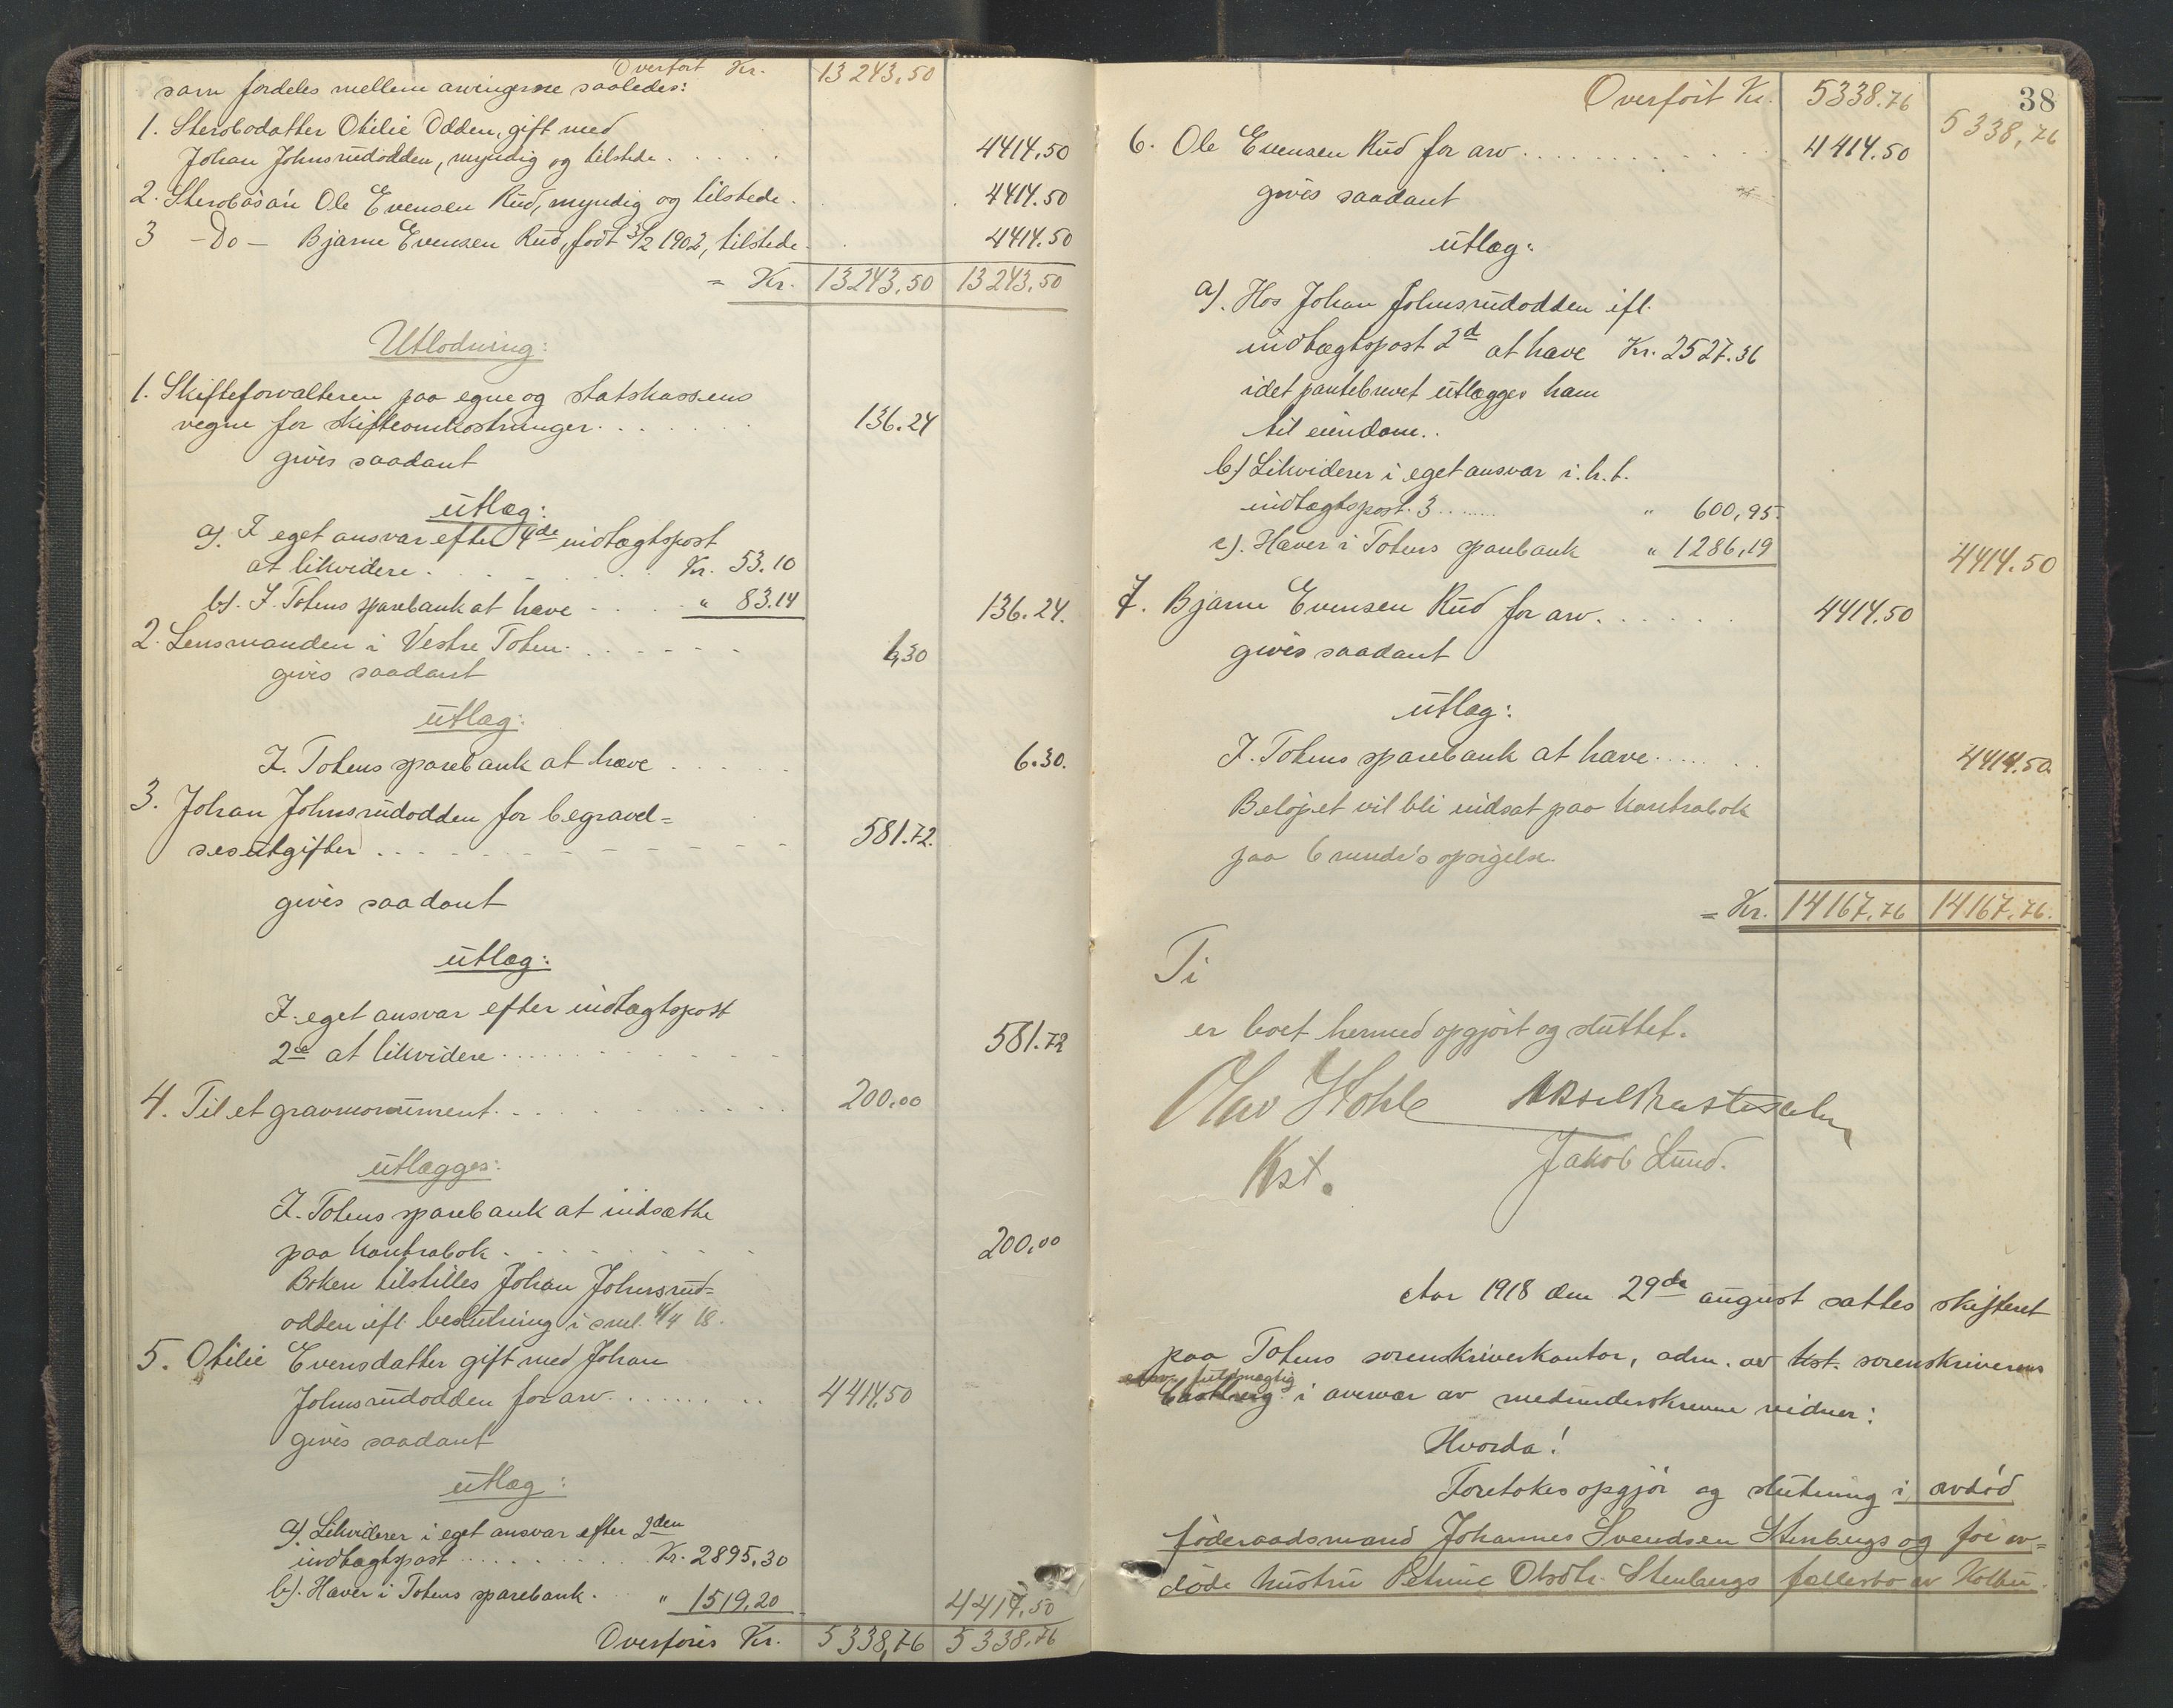 Overført Kr. 13243,50
som fordeles mellem arvingerne saaledes:
1. Sterbodatter Otilie Odden, gift med
Johan Johnsrudodden, myndig og tilstede . . . . . . 4414.50
2. Sterbosøn Ole Evensen Rud, myndig og tilstede . . . 4414.50
3 - Do - Bjarne Evensen Rud, født 3/2 1902, tilstede . . 4414.50
= Kr. 13243,50 13243,50
Utlodning:
1. Skifteforvalteren paa egne og statskassens
vegne for skifteomkostninger . . . . . . 136.24
givis saadant
utlæg:
a). I eget ansvar efter 4de indtægtspost
at likvidere . . . . . . Kr. 53.10
b). I Totens sparebank at hæve . . . . " 83.14 136.24.
2. Lensmanden i Vestre Toten . . . . . . 6,30
givis saadant
utlæg:
I Totens sparebank at hæve . . . . . 6.30.
3. Johan Johnsrudodden for begravel=
sesutgifter . . . . . . . . . 581.72.
givis saadant
utlæg:
I eget ansvar efter indtægtspost
2c at likvidere . . . . . . . . 581.72
4. Til et gravmonument . . . . . . . 200,00
utlægges:
I Totens sparebank at indsætte
paa kontrabok . . . . . . . 200,00
Boken tilstilles Johan Johnsrud=
odden ifl. beslutning i saml. 4/4 18.
5. Otilie Evensdatter gift med Johan
Johnsrudodden for arv . . . . . . . 4414,50
givis saadant
utlæg:
a). Likviderer i eget ansvar efter 2den
indtægtspost . . . . . . . . Kr. 2895,30
b). Hæver i Totens sparebank . " 1519,20 4414,50
Overføres Kr. 5338,76 5338,76
38
Overført Kr. 5338.76 5338,76
6. Ole Evensen Rud for arv . . . . . . . . . 4414.50
givis saadant
utlæg:
a). Hos Johan Johnsrudodden ifl.
indtægtspost 2d at hæve Kr. 2527.36
idet pantebrevet utlægges ham
til eiendom..
b) Likviderer i eget ansvar i.h.t.
indtægtspost 3 ....... " 600,95.
c). Hæver i Totens sparebank " 1286,19 4414.50
7. Bjarne Evensen Rud for arv . . . . . . . 4414.50
givis saadant
utlæg:
I Totens sparebank at hæve . . . . . . . 4414.50
Beløpet vil bli indsat paa kontrabok
paa 6 mndr's opsigelse.
= Kr. 14167,76 14167,76.
Ti
er boet hermed opgjort og sluttet.
Olav Kohle
Kst. Jakob Lund.
Aar 1918 den 29de august sattes skifteret
paa Totens sorenskriverkontor, adm. av kst. sorenskriverens
fuldmægtig
i overvær av medunderskrevne vidner:
Hvorda!
Foretokes opgjør og slutning i avdød
føderaadsmand Johannes Svendsen Stenbergs og før av=
døde hustru Petrine Olsdtr. Stenbergs fællesbo av Kolbu.